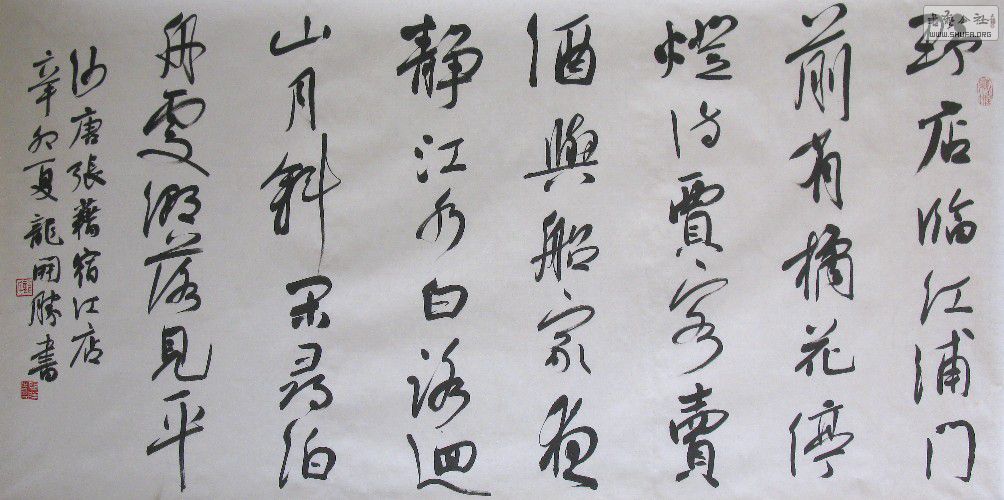 野店臨江浦門
前有橘花停
燈待賈客賣
酒與船家夜
靜江水白路迴
山月斜閑尋泊
舟處潮落見平
沙 唐張籍宿江店
辛卯夏龍開勝書
书法公社
WWW.SHUFA.ORG